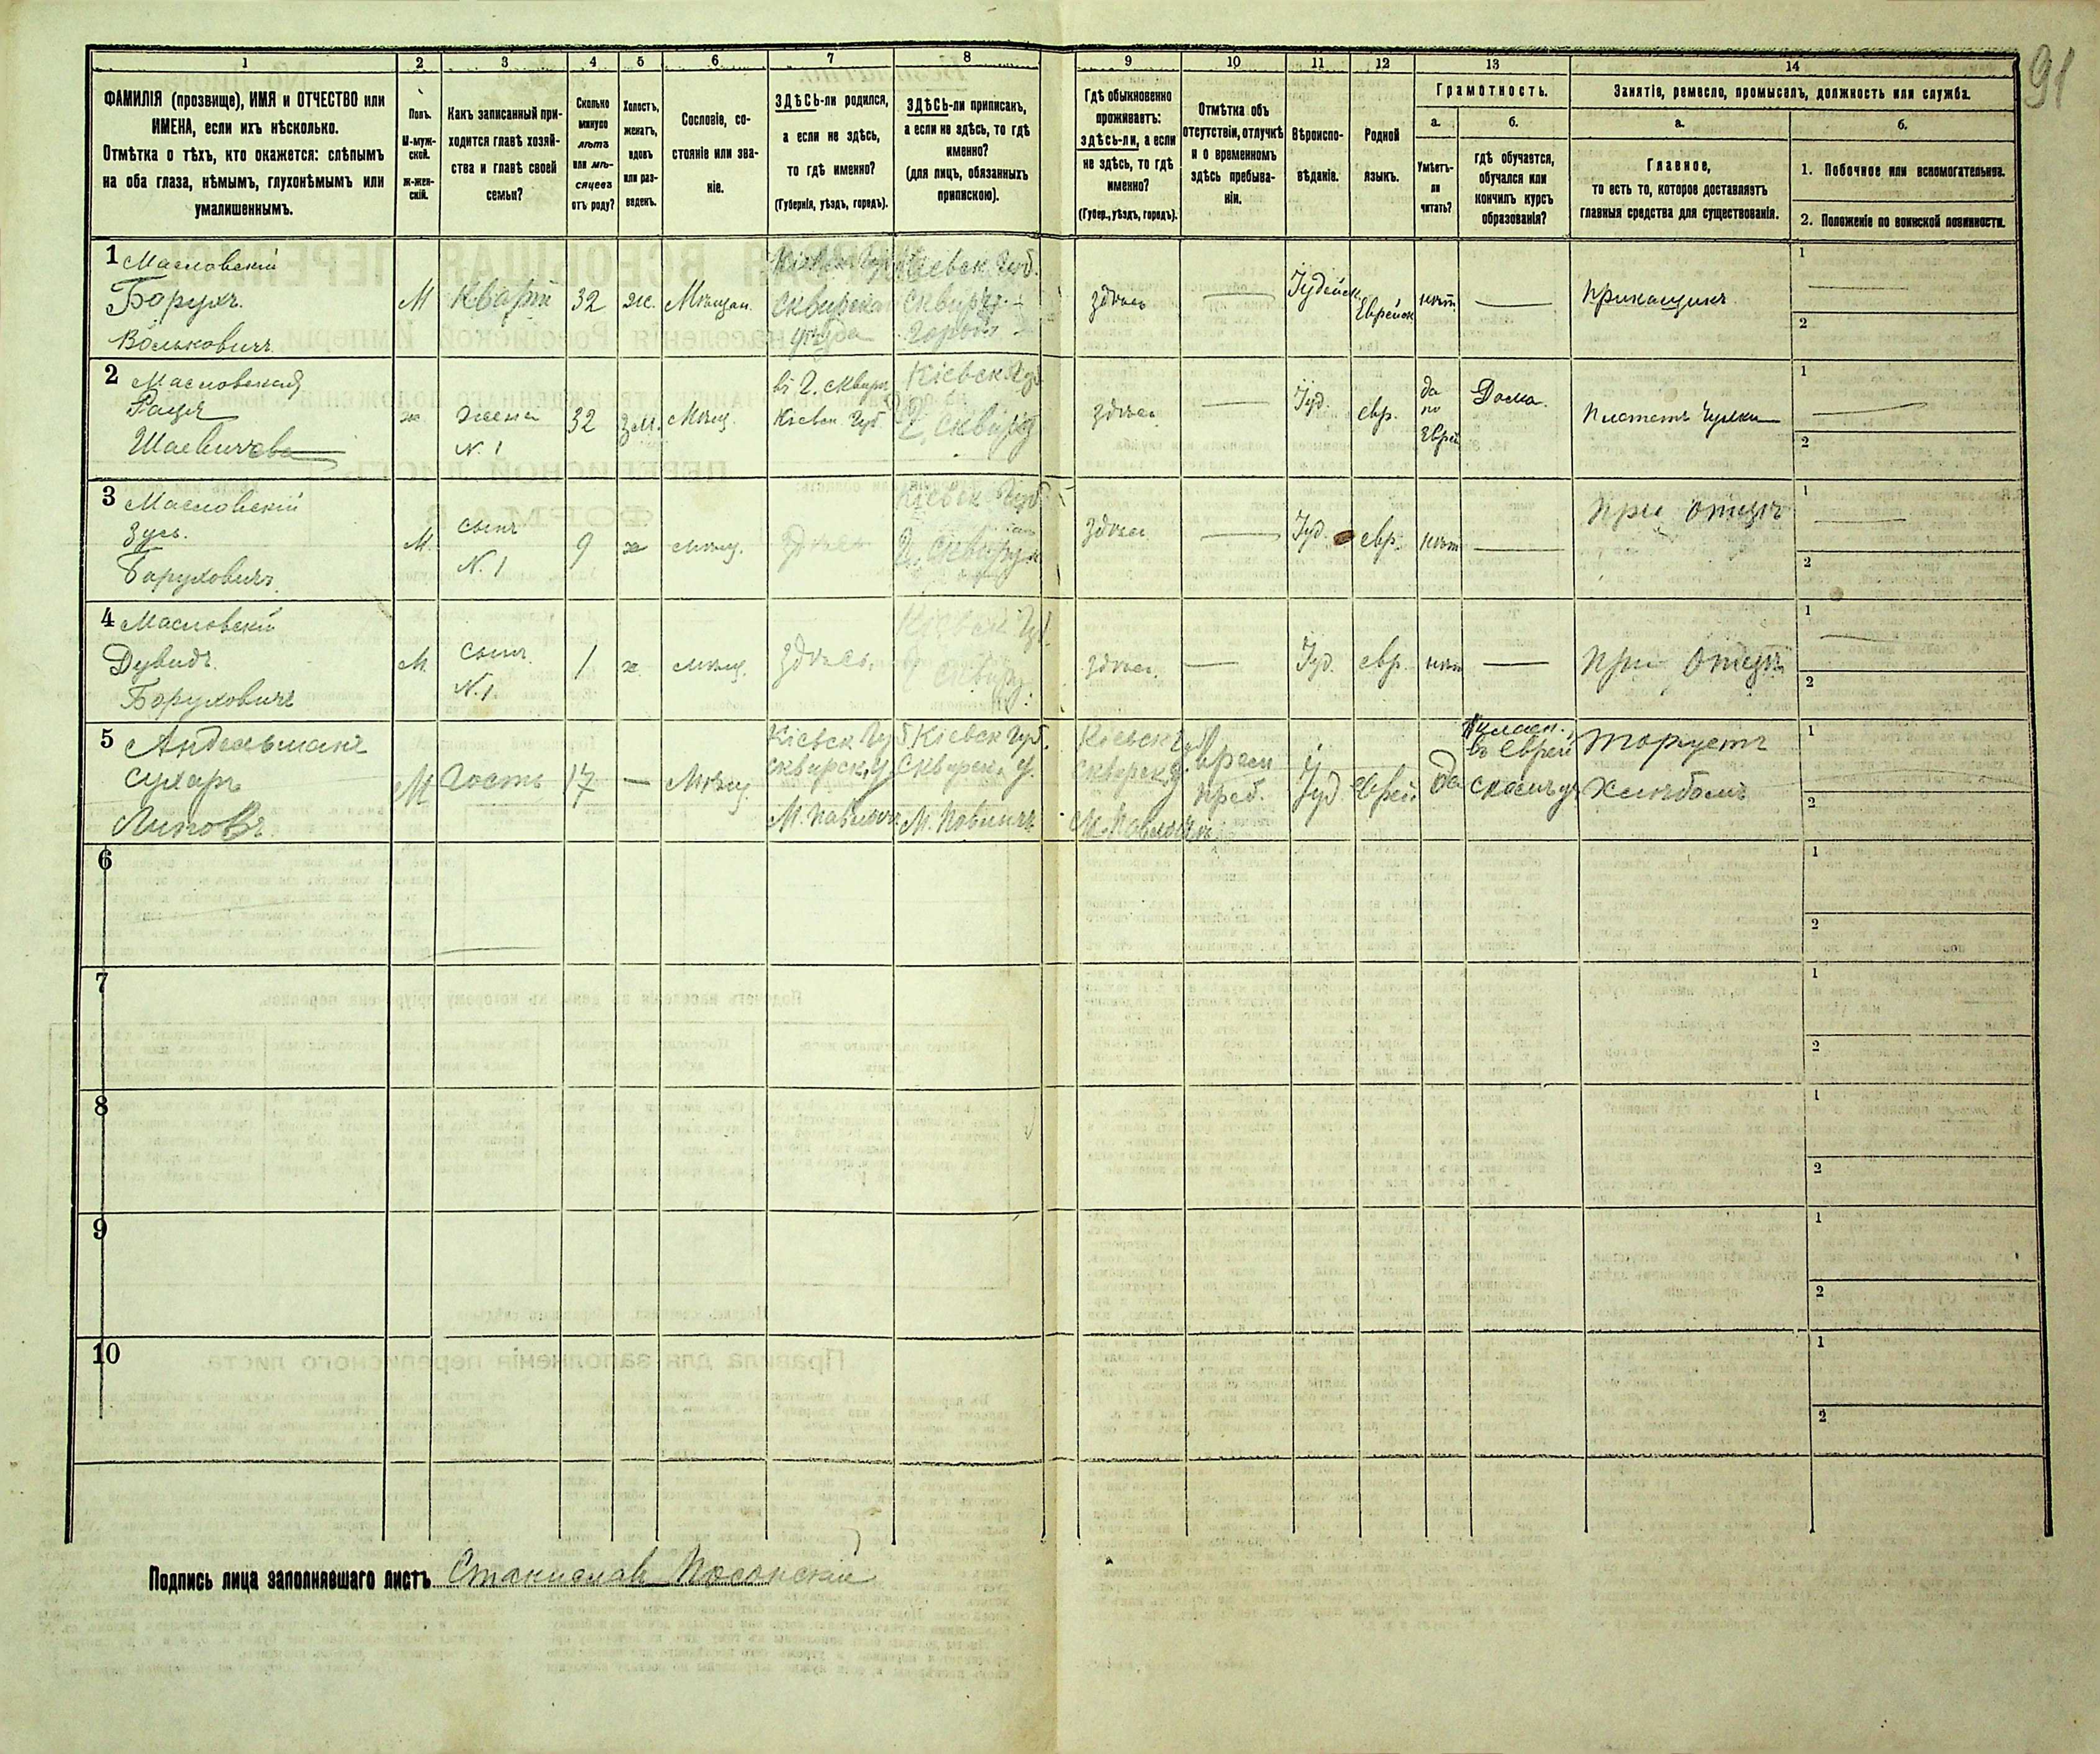 91
1 2 3 4 5 6 7 8 9 10 11 12 13 14
ФАМИЛІЯ (прозвище), ИМЯ и ОТЧЕСТВО или
ИМЕНА, если ихъ нѣсколько.
Отмѣтка о тѣхъ, кто окажется: слѣпымъ
на оба глаза, нѣмымъ, глухонѣмымъ или
умалишеннымъ.
Полъ.
М-муж-
ской.
ж-жен-
скій.
Какъ записанный при-
ходится главѣ хозяй-
ства и главѣ своей
семьи?
Сколько
минуло
лѣтъ
или мѣ-
сяцевъ
отъ роду?
Холостъ,
женатъ,
вдовъ
или раз-
веденъ.
Сословіе, со-
стояніе или зва-
ніе.
ЗДѢСЬ-ли родился,
а если не здѣсь,
то гдѣ именно?
(Губернія, уѣздъ, городъ).
ЗДѢСЬ-ли приписанъ,
а если не здѣсь, то гдѣ
именно?
(для лицъ, обязанныхъ
припискою).
Гдѣ обыкновенно
проживаетъ:
здѣсь-ли, а если
не здѣсь, то гдѣ
именно?
(Губер., уѣздъ, городъ).
Отмѣтка объ
отсутствіи, отлучкѣ
и о временномъ
здѣсь пребыва-
ніи.
Вѣроиспо-
вѣданіе.
Родной
языкъ.
Грамотность.
а.
Умѣетъ-
ли
читать?
б.
гдѣ обучается,
обучался или
кончилъ курсъ
образованія?
Занятіе, ремесло, промыселъ, должность или служба.
а.
Главное,
то есть то, которое доставляетъ
главныя средства для существованія.
б.
1. Побочное или вспомогательное.
2. Положеніе по воинской повинности.
1 Масловскій
Борухъ
Вольковичъ
М
Кварт
32
ж.
Мѣщан.
Кіевск Губ
Сквирскаго
уѣзда
Кіевск Губ.
Сквира
городъ
здѣсь
Іудейск.
Еврейск
нѣт
прикащикъ
1
2
2 Масловская
Шаевичева
ж
жена
N. 1
32
зам.
Мѣщ.
въ г. Сквирѣ
Кіевск. Губ.
Кіевск Губ
г. Сквира
здѣсь
Іуд.
евр.
да
по
Еврей
Дома.
Плетет Чулки
1
2
3 Масловскій
Зусь.
Боруховичъ
М.
сынъ
N. 1
9
х
мѣщ.
здѣсь
Кіевск Губ.
г. Сквира
здѣсь
Іуд.
евр.
нѣт
При отцѣ
1
2
4 Масловскій
Дувидъ
Боруховичъ
М.
сынъ
N. 1
1
х.
мѣщ.
здѣсь.
Кіевск Губ.
г. Сквира
здѣсь.
Іуд.
евр.
нѣт
При Отцѣ
1
2
5 Андельманъ
Сухаръ
М
Гость
17
Мѣщ
Кіевск Губ
Сквирск. у
М. Паволочь
Кіевск Губ.
Сквирск. у.
Кіевск Губ
Сквирск у.
М. Паволочь
Врем
преб.
Іуд
Еврей
да
въ Еврей
Торгуетъ
Хлѣбомъ
1
2
6
1
2
7
1
2
8
1
2
9
1
2
10
1
2
Подпись лица заполнявшаго листъ Станислав